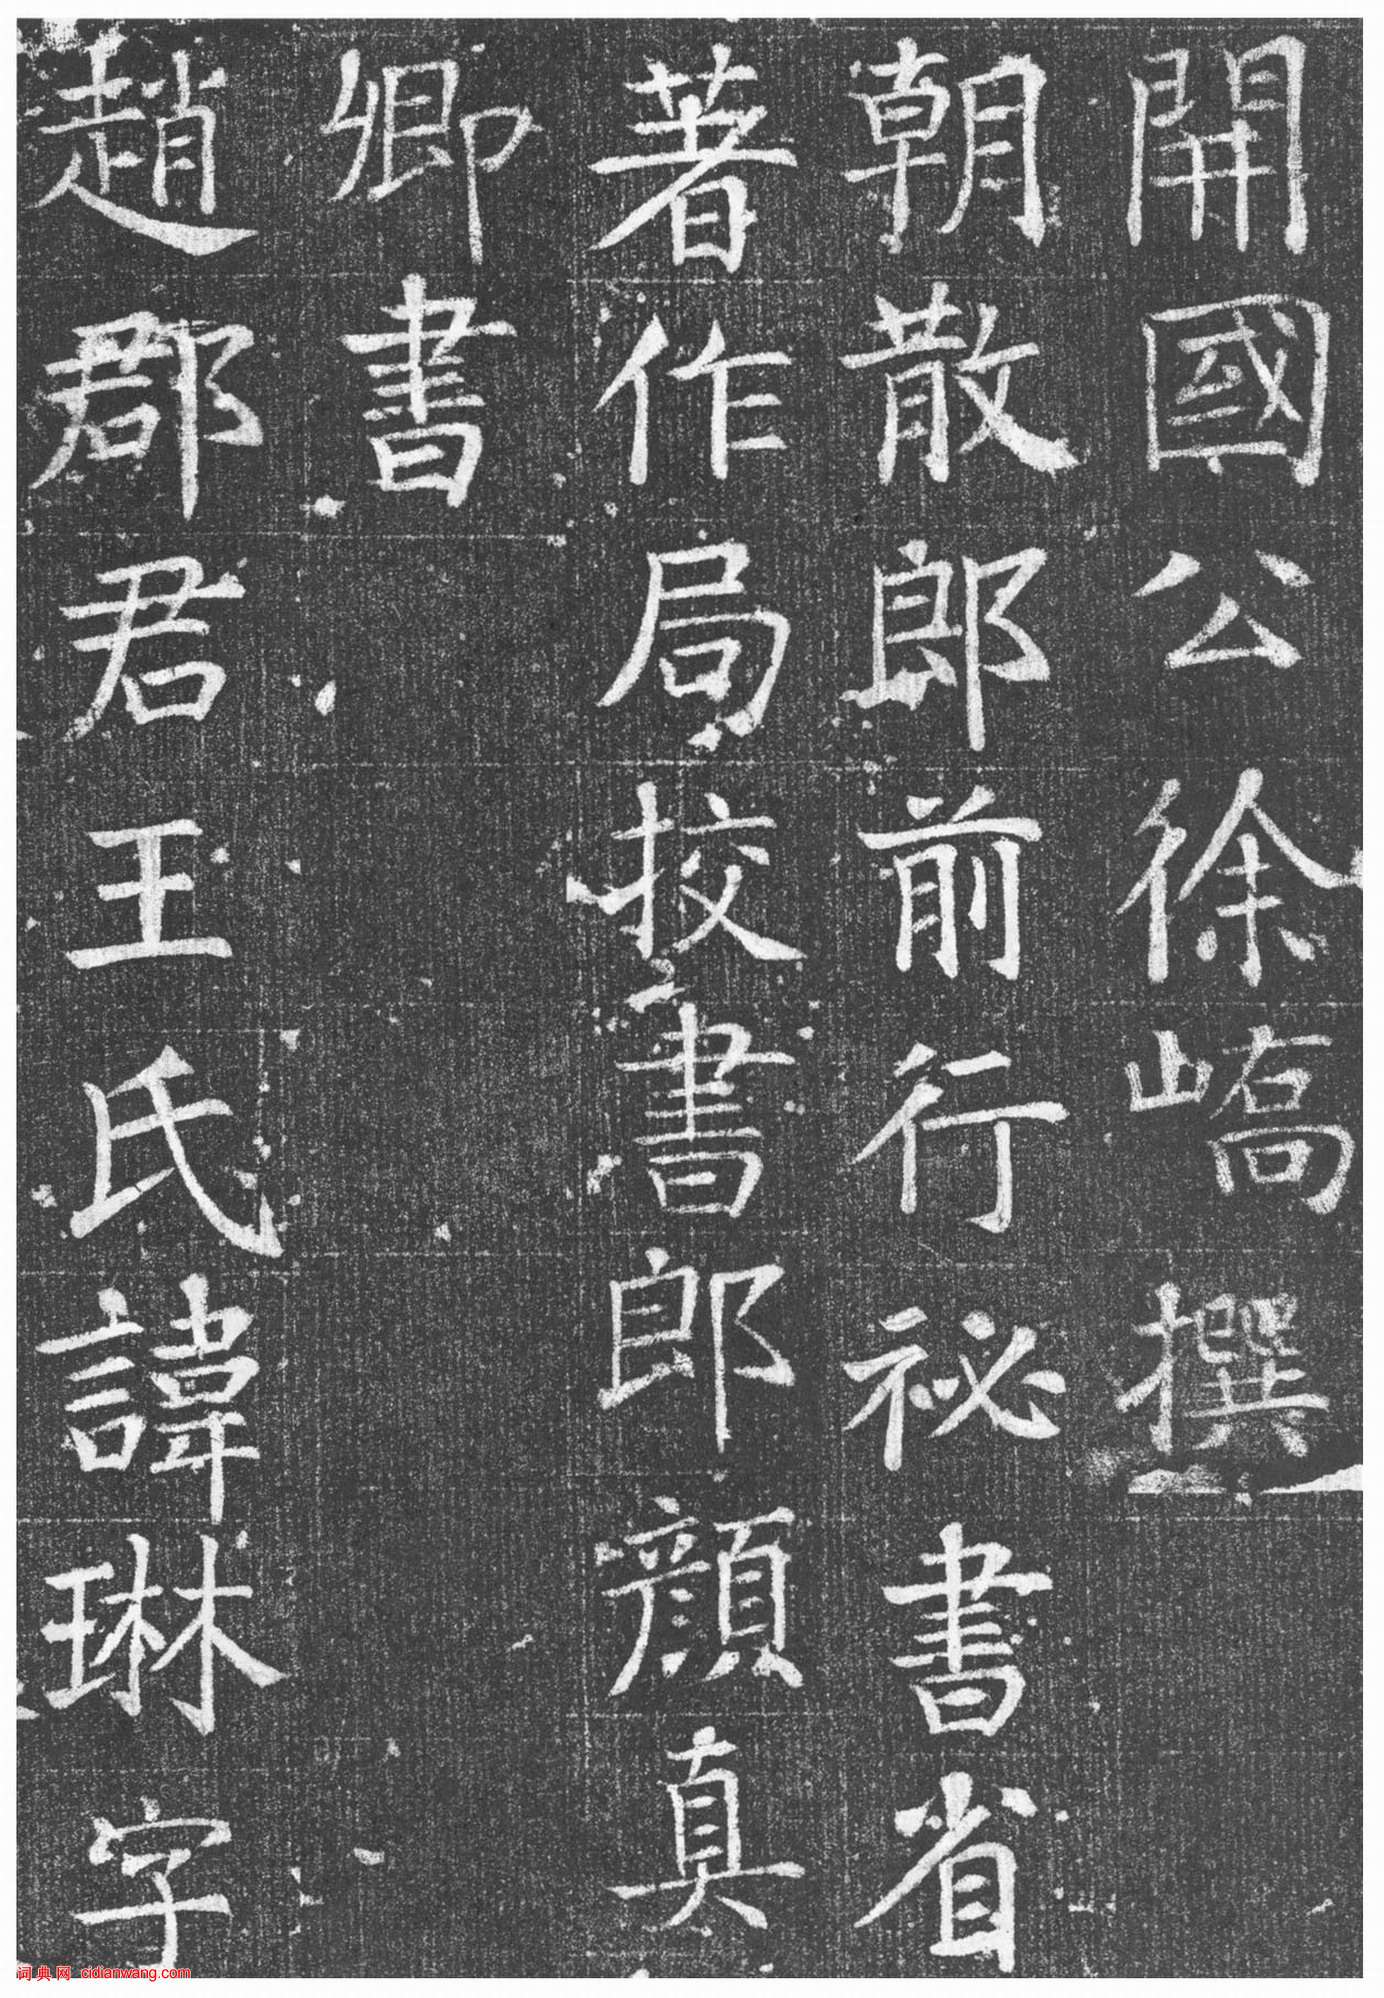 開國公徐嶠撰
朝散郎前行祕書省
著作局校書郎顔真
卿書
趙郡君王氏諱琳字
词典网 cidianwang.com